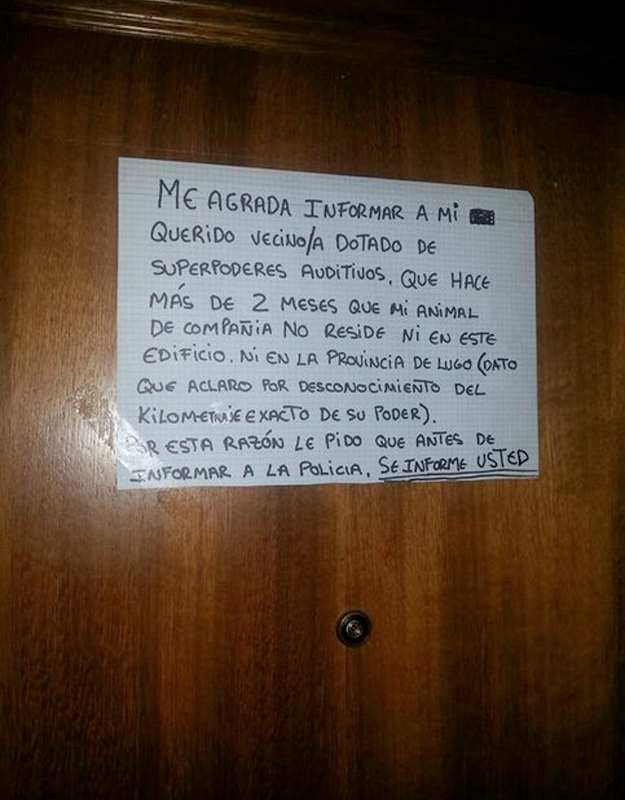 ME AGRADA INFORMAR A Mi
QUERIDO VECINO/A DOTADO DE
SUPERPODERES AUDITIVOS, QUE HACE
MÁS DE 2 MESES QUE Mi ANIMAL
DE COMPAÑIA NO RESIDE Ni EN ESTE
EDIFICIO. Ni EN LA PROVINCIA DE LUGO (DATO
QUE ACLARO POR DESCONOCIMIENTO DEL
KILOMETRAJE EXACTO DE SU PODER).
POR ESTA RAZÓN LE PIDO QUE ANTES DE
INFORMAR A LA POLICIA, SE INFORME USTED